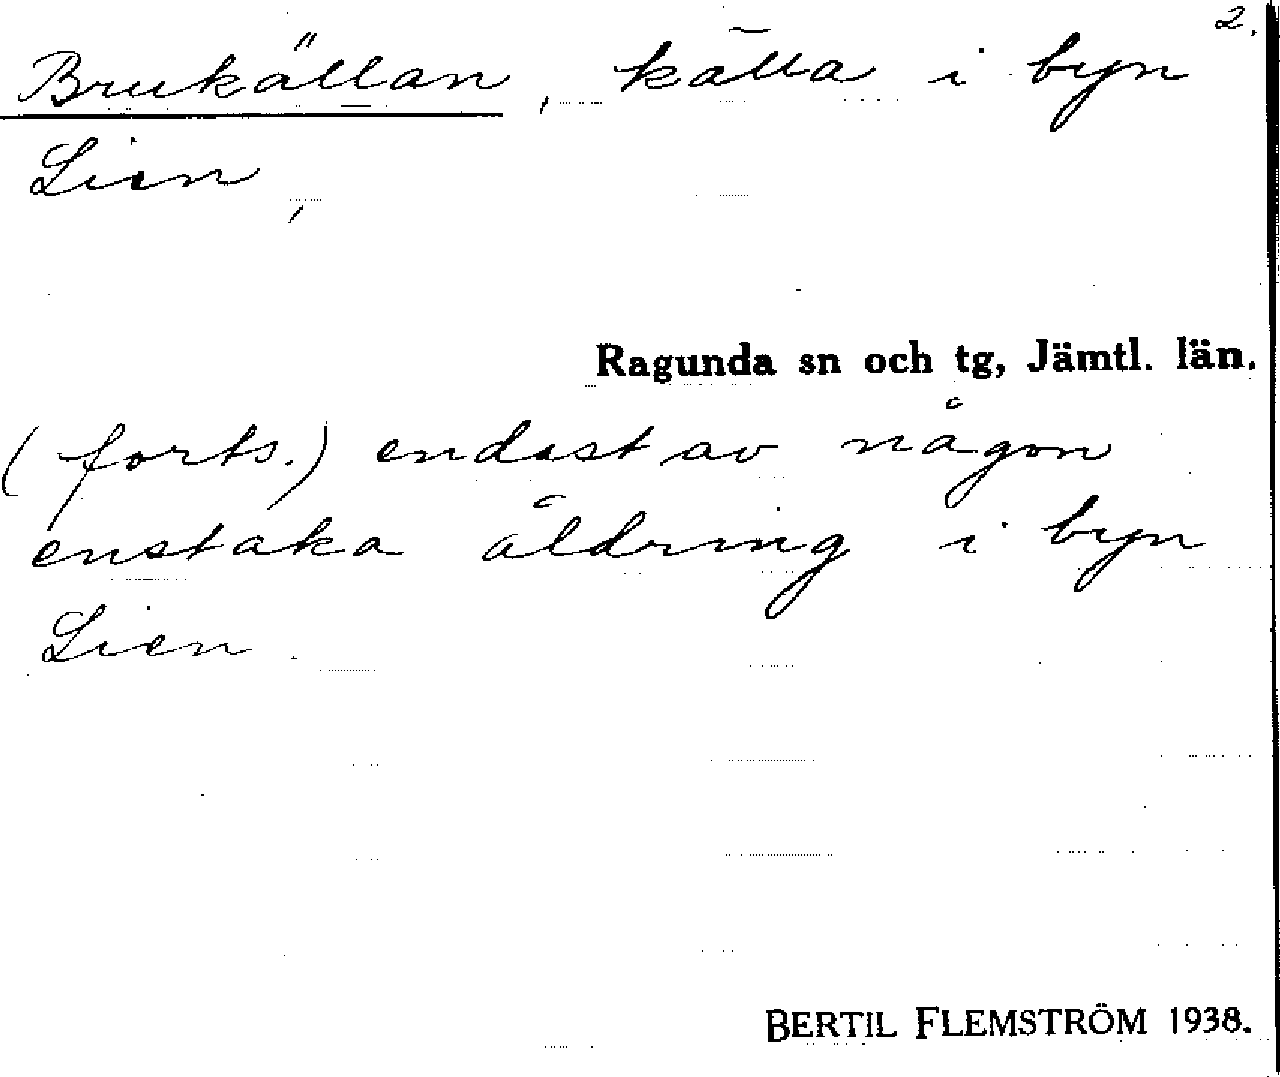 2.
Brukällan, källa i byn
Lien,
Ragunda sn och tg, Jämtl. län.
(forts.) endast av någon
enstaka åldring i byn
Lien.
BERTIL FLEMSTRÖM 1938.